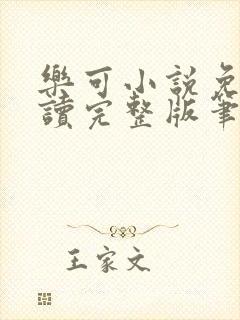 樂可小說免
讀完整版筆
王家文